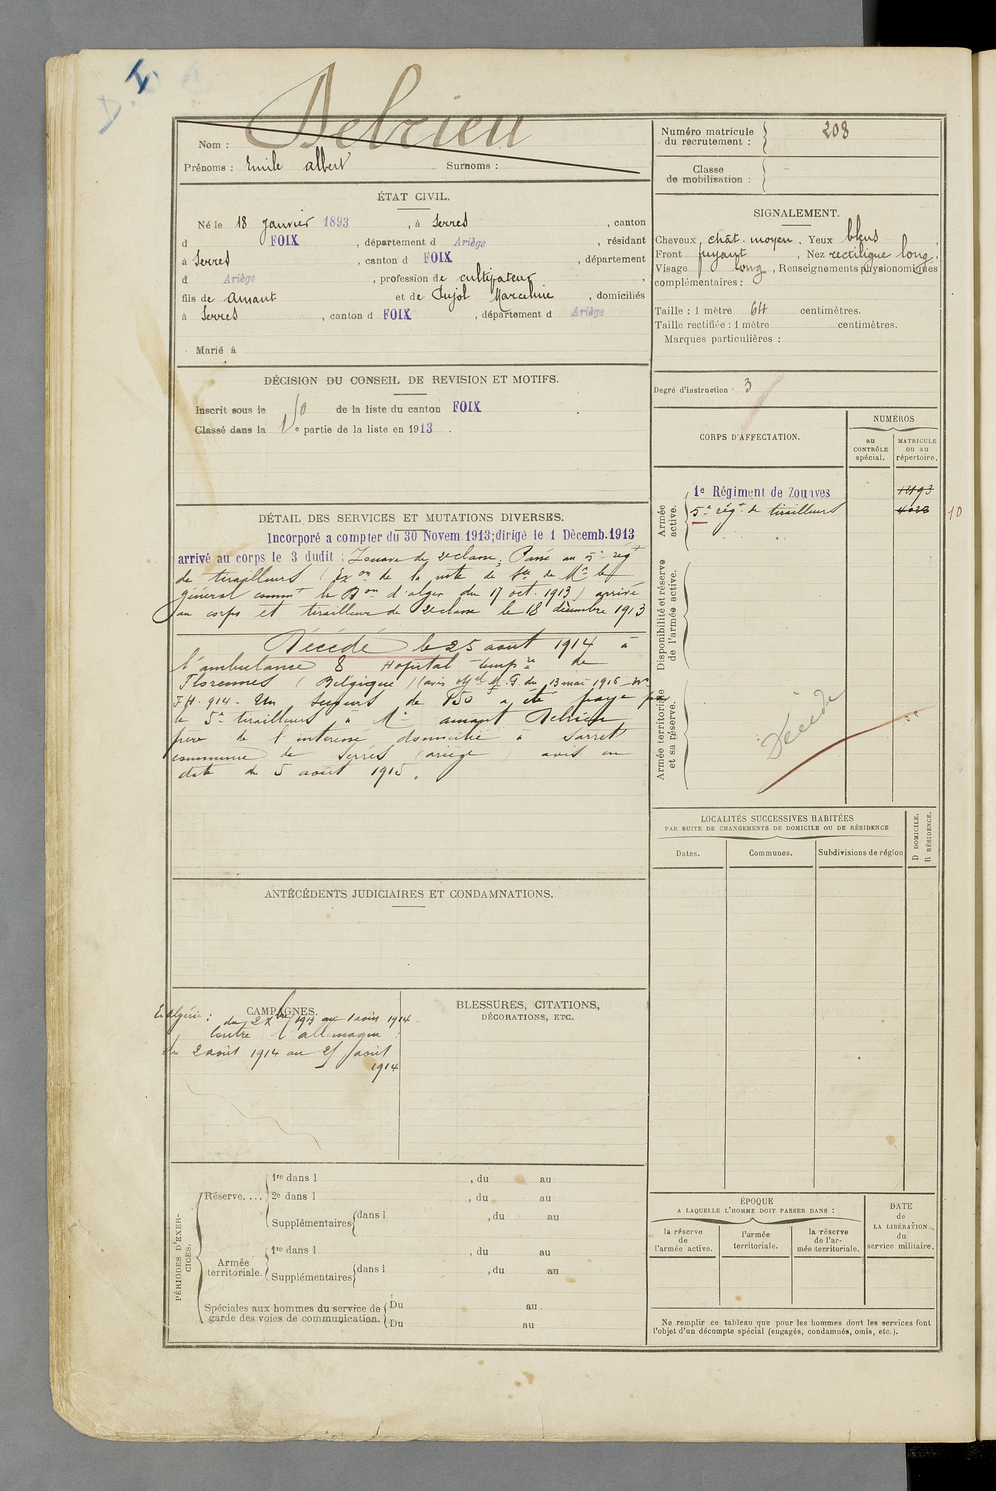 D. I.
Nom : Delrieu
Prénoms : Emile albert Surnoms :
Numéro matricule du recrutement : 208
Classe de mobilisation :
ÉTAT CIVIL.
Né le 18 janvier 1893, à Serres, canton
d FOIX, département d Ariège, résidant
à Serres, canton d FOIX, département
d Ariège, profession de cultivateur,
fils de Amant et de Pujol Marceline, domiciliés
à Serres, canton d FOIX, département d Ariège
Marié à
SIGNALEMENT.
Cheveux chât. moyen, Yeux bleus,
Front fuyant, Nez rectiligne long,
Visage long, Renseignements physionomiques
complémentaires :
Taille : 1 mètre 64 centimètres.
Taille rectifiée : 1 mètre centimètres.
Marques particulières :
Degré d'instruction 3
DÉCISION DU CONSEIL DE REVISION ET MOTIFS.
Inscrit sous le de la liste du canton FOIX
Classé dans la partie de la liste en 1913.
CORPS D'AFFECTATION.
NUMÉROS
au CONTRÔLE spécial.
MATRICULE OU AU répertoire.
Armée active.
1e Régiment de Zouaves
5e régt de tirailleurs
10
Disponibilité et réserve de l'armée active.
Armée territoriale et sa réserve.
Décédé
DÉTAIL DES SERVICES ET MUTATIONS DIVERSES.
Incorporé a compter du 30 Novem.1913;dirigé le 1 Décemb.1913
arrivé au corps le 3 dudit : Zouave de 2e classe, Passé au 5e régt
de tirailleurs (Exon de la note de de Mr le
Général commt la Don d'alger du 17 oct. 1913) arrivé
au corps et tirailleur de 2e classe le 18 décembre 1913
Décédé le 25 août 1914 à
l'ambulance 8 Hopital tempre de
Florennes (Belgique) (avis du 13 mai 1916 - No
F.H. 914. Un secours de 150 f a été payé par
le 5e tirailleurs à Mr amant Delrieu
père de l'intéressé domicilié à Sarret
commune de Serres ariège avis en
date du 5 août 1915.
LOCALITÉS SUCCESSIVES HABITÉES
PAR SUITE DE CHANGEMENTS DE DOMICILE OU DE RÉSIDENCE
Dates.
Communes.
Subdivisions de région
D DOMICILE.
R RÉSIDENCE.
ANTÉCÉDENTS JUDICIAIRES ET CONDAMNATIONS.
CAMPAGNES.
En algérie : du 2 Xbre 1913 au 1 août 1914
Contre l'allemagne
du 2 août 1914 au 25 août
1914
BLESSURES, CITATIONS,
DÉCORATIONS, ETC.
PÉRIODES D'EXERCICES.
Réserve....
1re dans l , du au
2e dans l , du au
Supplémentaires dans l , du au
Armée territoriale.
1re dans l , du au
Supplémentaires dans l , du au
Spéciales aux hommes du service de garde des voies de communication.
Du au
Du au
ÉPOQUE
A LAQUELLE L'HOMME DOIT PASSER DANS :
la réserve de l'armée active.
l'armée territoriale.
la réserve de l'armée territoriale.
DATE de LA LIBÉRATION du service militaire.
Ne remplir ce tableau que pour les hommes dont les services font
l'objet d'un décompte spécial (engagés, condamnés, omis, etc.).